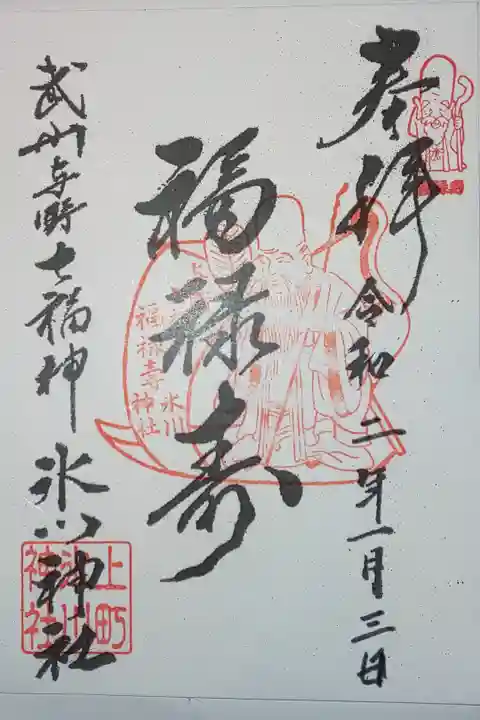 奉拝
令和二年一月三日
福禄寿
氷川
福禄寿神社
武州与野七福神 氷川神社
上町
氷川
神社